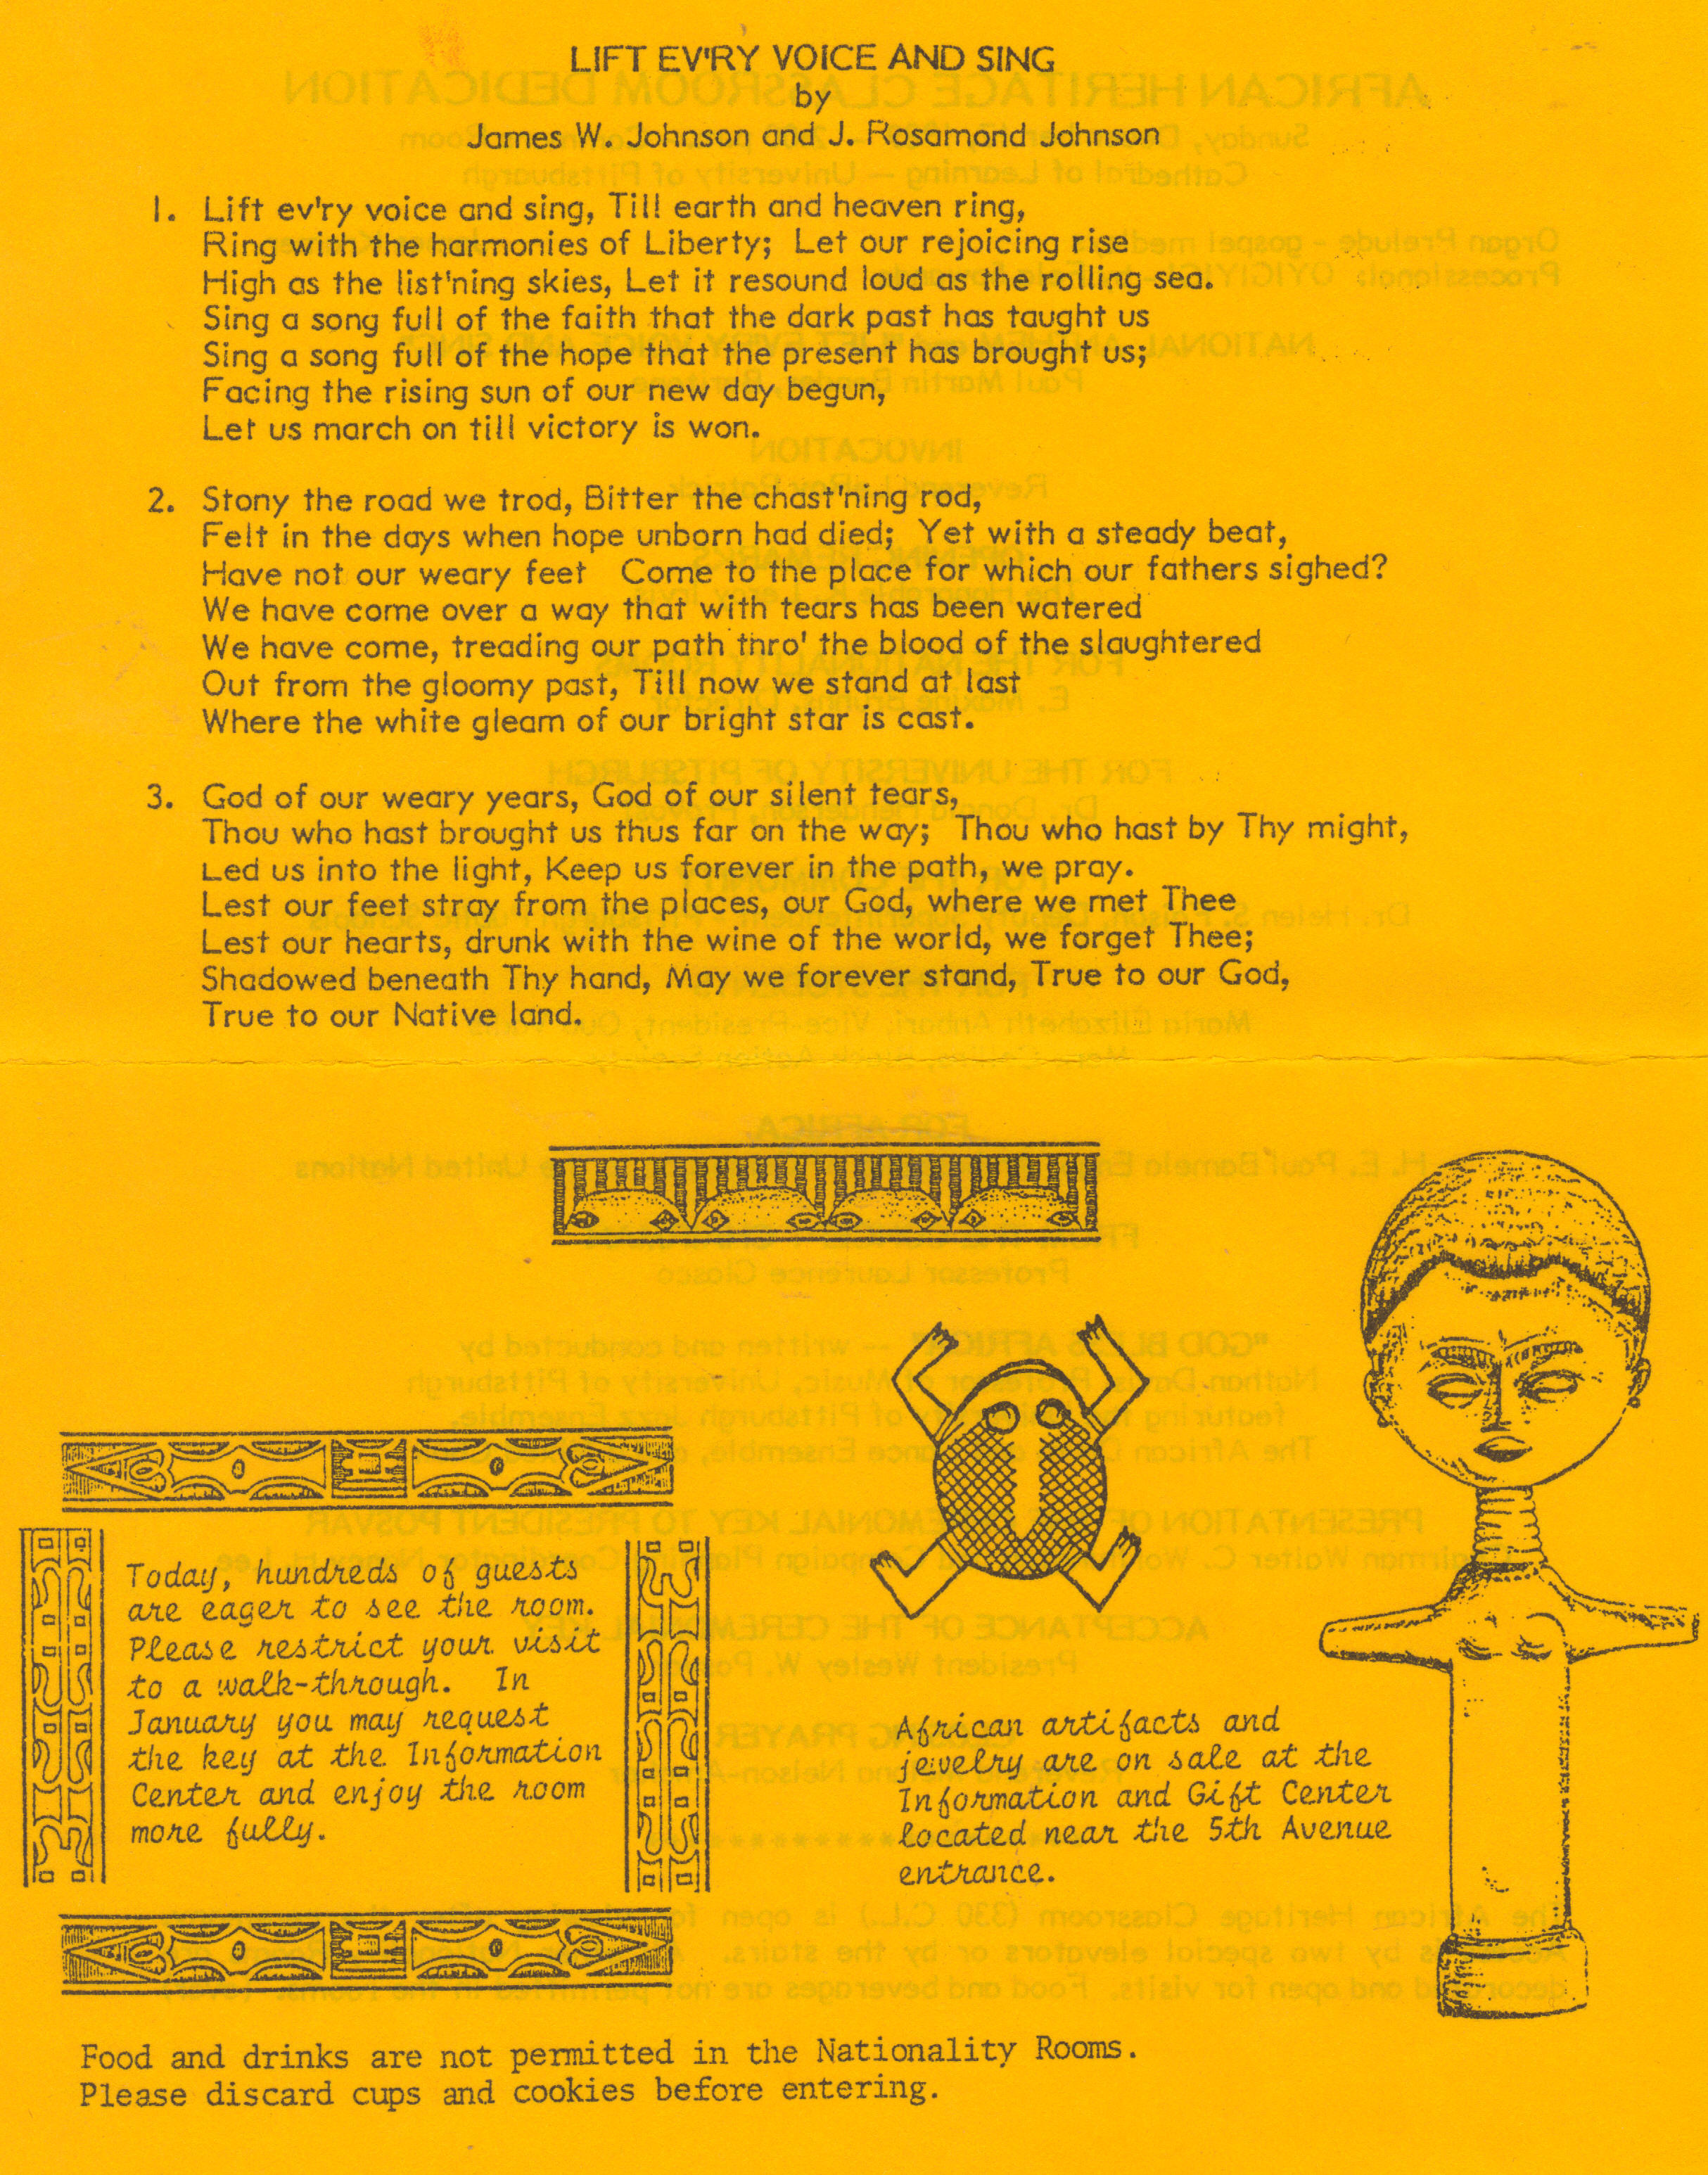 LIFT EV'RY VOICE AND SING
by
James W. Johnson and J. Rosamond Johnson
1. Lift ev'ry voice and sing, Till earth and heaven ring,
Ring with the harmonies of Liberty; Let our rejoicing rise
High as the list'ning skies, Let it resound loud as the rolling sea.
Sing a song full of the faith that the dark past has taught us
Sing a song full of the hope that the present has brought us;
Facing the rising sun of our new day begun,
Let us march on till victory is won.
2. Stony the road we trod, Bitter the chast'ning rod,
Felt in the days when hope unborn had died; Yet with a steady beat,
Have not our weary feet Come to the place for which our fathers sighed?
We have come over a way that with tears has been watered
We have come, treading our path thro' the blood of the slaughtered
Out from the gloomy past, Till now we stand at last
Where the white gleam of our bright star is cast.
3. God of our weary years, God of our silent tears,
Thou who hast brought us thus far on the way; Thou who hast by Thy might,
Led us into the light, Keep us forever in the path, we pray.
Lest our feet stray from the places, our God, where we met Thee
Lest our hearts, drunk with the wine of the world, we forget Thee;
Shadowed beneath Thy hand, May we forever stand, True to our God,
True to our Native land.
Today, hundreds of guests
are eager to see the room.
Please restrict your visit
to a walk-through. In
January you may request
the key at the Information
Center and enjoy the room
more fully.
African artifacts and
jewelry are on sale at the
Information and Gift Center
located near the 5th Avenue
entrance.
Food and drinks are not permitted in the Nationality Rooms.
Please discard cups and cookies before entering.